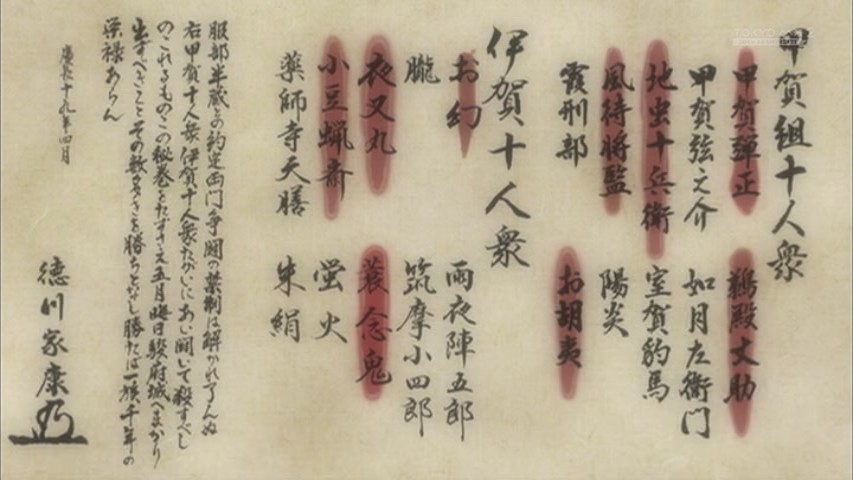 甲賀組十人衆
甲賀彈正 鵜殿丈助
甲賀弦之介 如月左衛門
地虫十兵衛 室賀豹馬
風待将監 陽炎
霞刑部 お胡夷
伊賀十人衆
お幻 雨夜陣五郎
朧 筑摩小四郎
夜叉丸 蓑念鬼
小豆蝋斎 蛍火
薬師寺天膳 朱絹
服部半蔵との約定両門争闘の禁制は解かれ了んぬ
右甲賀十人衆伊賀十人衆たがいにあい闘いて殺すべし
のこれるものこの秘巻をたずさえ五月晦日駿府城へまかり
出ずべきことその数多きを勝ちとなし勝たば一族千年の
栄禄あらん
慶長十九年四月
徳川家康